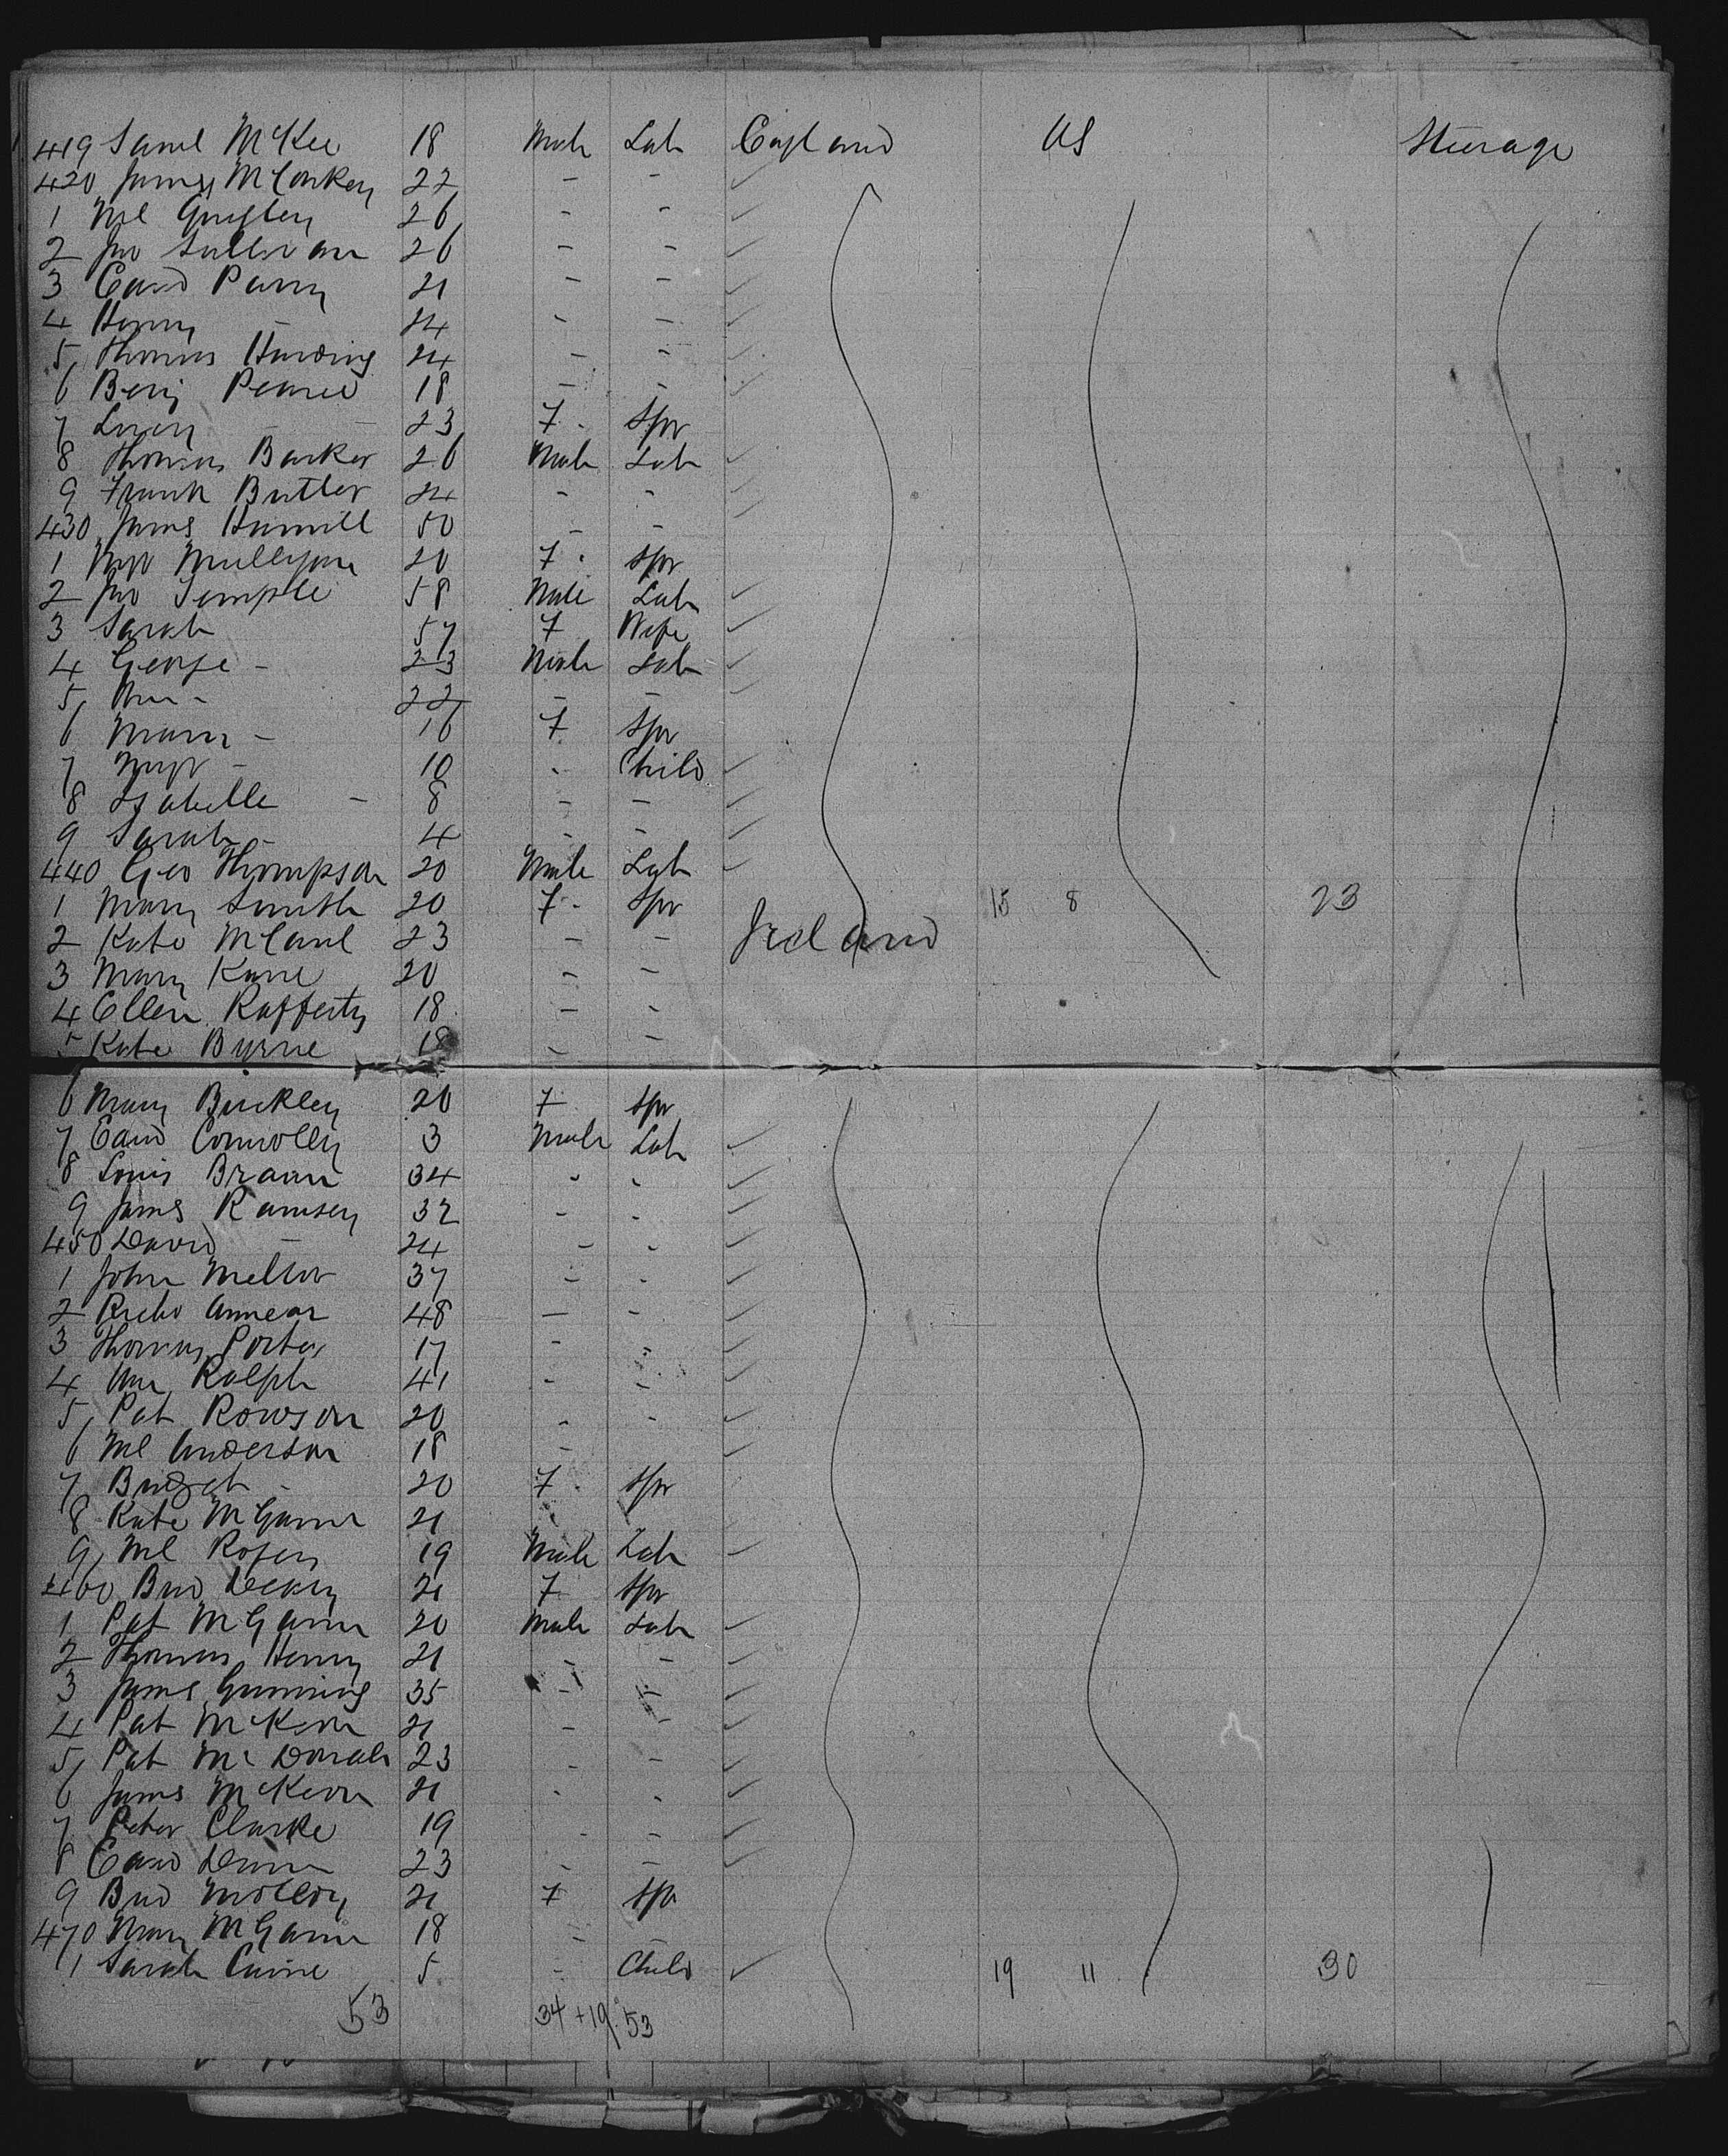 419 Saml McKee 18 Male Lab England US Steerage
420 James McConkey 22 - -
1 Ml Quigley 26 - -
2 Jno Sullivan 26 - -
3 Edwd Parry 21 - -
4 Henry - 24 - -
5 Thomas Harding 24 - -
6 Benj Pearce 18 - -
7 Lucy - 23 F. Spr
8 Thomas Barker 26 Male Lab
9 Frank Butler 24 - -
430 James Hamill 50 - -
1 Mgt Mulligan 20 F. Spr
2 Jno Temple 58 Male Lab
3 Sarah 57 F Wife
4 George - 23 Male Lab
5 Wm - 22 - -
6 Mary - 16 F Spr
7 Mgt - 10 - Child
8 Isabella - 8 - -
9 Sarah - 4 - -
440 Geo Thompson 20 Male Lab
1 Mary Smith 20 F. Spr 15 8 23
2 Kate McCaul 23 - - Ireland
3 Mary Kane 20 - -
4 Ellen Rafferty 18 - -
5 Kate Byrne 18 - -
6 Mary Buckley 20 F Spr
7 Edwd Connolly 3 Male Lab
8 Louis Braun 34 - -
9 James Ramsey 32 - -
450 David - 24 - -
1 John Mellor 37 - -
2 Richd Annear 48 - -
3 Thomas Porter 17 - -
4 Wm Ralph 41 - -
5 Pat Rowson 20 - -
6 Ml Anderson 18 -
7 Bridget - 20 F. Spr
8 Kate McGann 21
9 Ml Rogers 19 Male Lab
460 Brid 21 F Spr
1 Pat McGann 20 Male Lab
2 Thomas Henry 21 - -
3 James Gunning 35 - -
4 Pat McKeon 21 - -
5 Pat McDonald 23 - -
6 James McKeon 21 - -
7 Peter Clarke 19 - -
8 Edwd Dunn 23 - -
9 Brid Molloy 21 F Spr
470 Mary McGann 18 - -
1 Sarah 5 - Child 19 11 30
53 34 + 19. 53